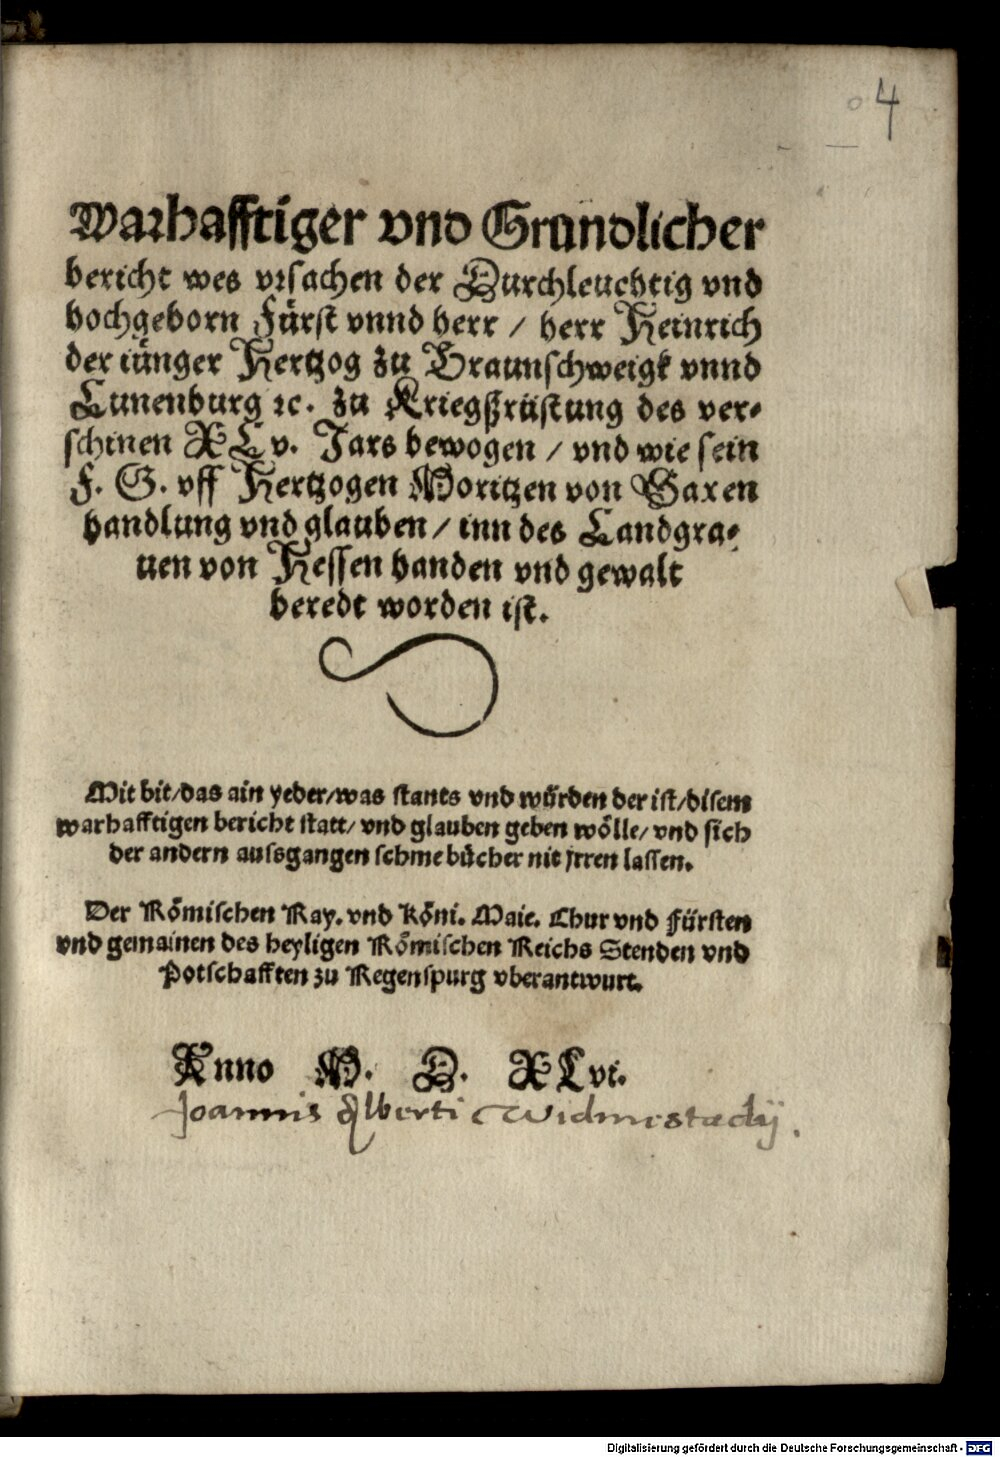 4
Warhafftiger vnd Grundlicher
bericht wes vrsachen der Durchleuchtig vnd
hochgeborn Fürst vnnd herr / herr Heinrich
der iünger Hertzog zu Braunschweigk vnnd
Lunenburg ꝛc. zu Kriegßrüstung des ver-
schinen XLv. Jars bewogen / vnd wie sein
F. G. vff Hertzogen Moritzen von Saxen
handlung vnd glauben / inn des Landgra-
uen von Hessen handen vnd gewalt
beredt worden ist.
Mit bit/das ain yeder/was stants vnd würden der ist/disem
warhafftigen bericht statt/ vnd glauben geben wölle/ vnd sich
der andern aussgangen schmebücher nit jrren lassen.
Der Römischen Kay. vnd Köni. Maie. Chur vnd Fürsten
vnd gemainen des heyligen Römischen Reichs Stenden vnd
Potschafften zu Regenspurg vberantwurt.
Anno M. D. XLvi.
Joannis Alberti Widmestadij.
Digitalisierung gefördert durch die Deutsche Forschungsgemeinschaft - DFG